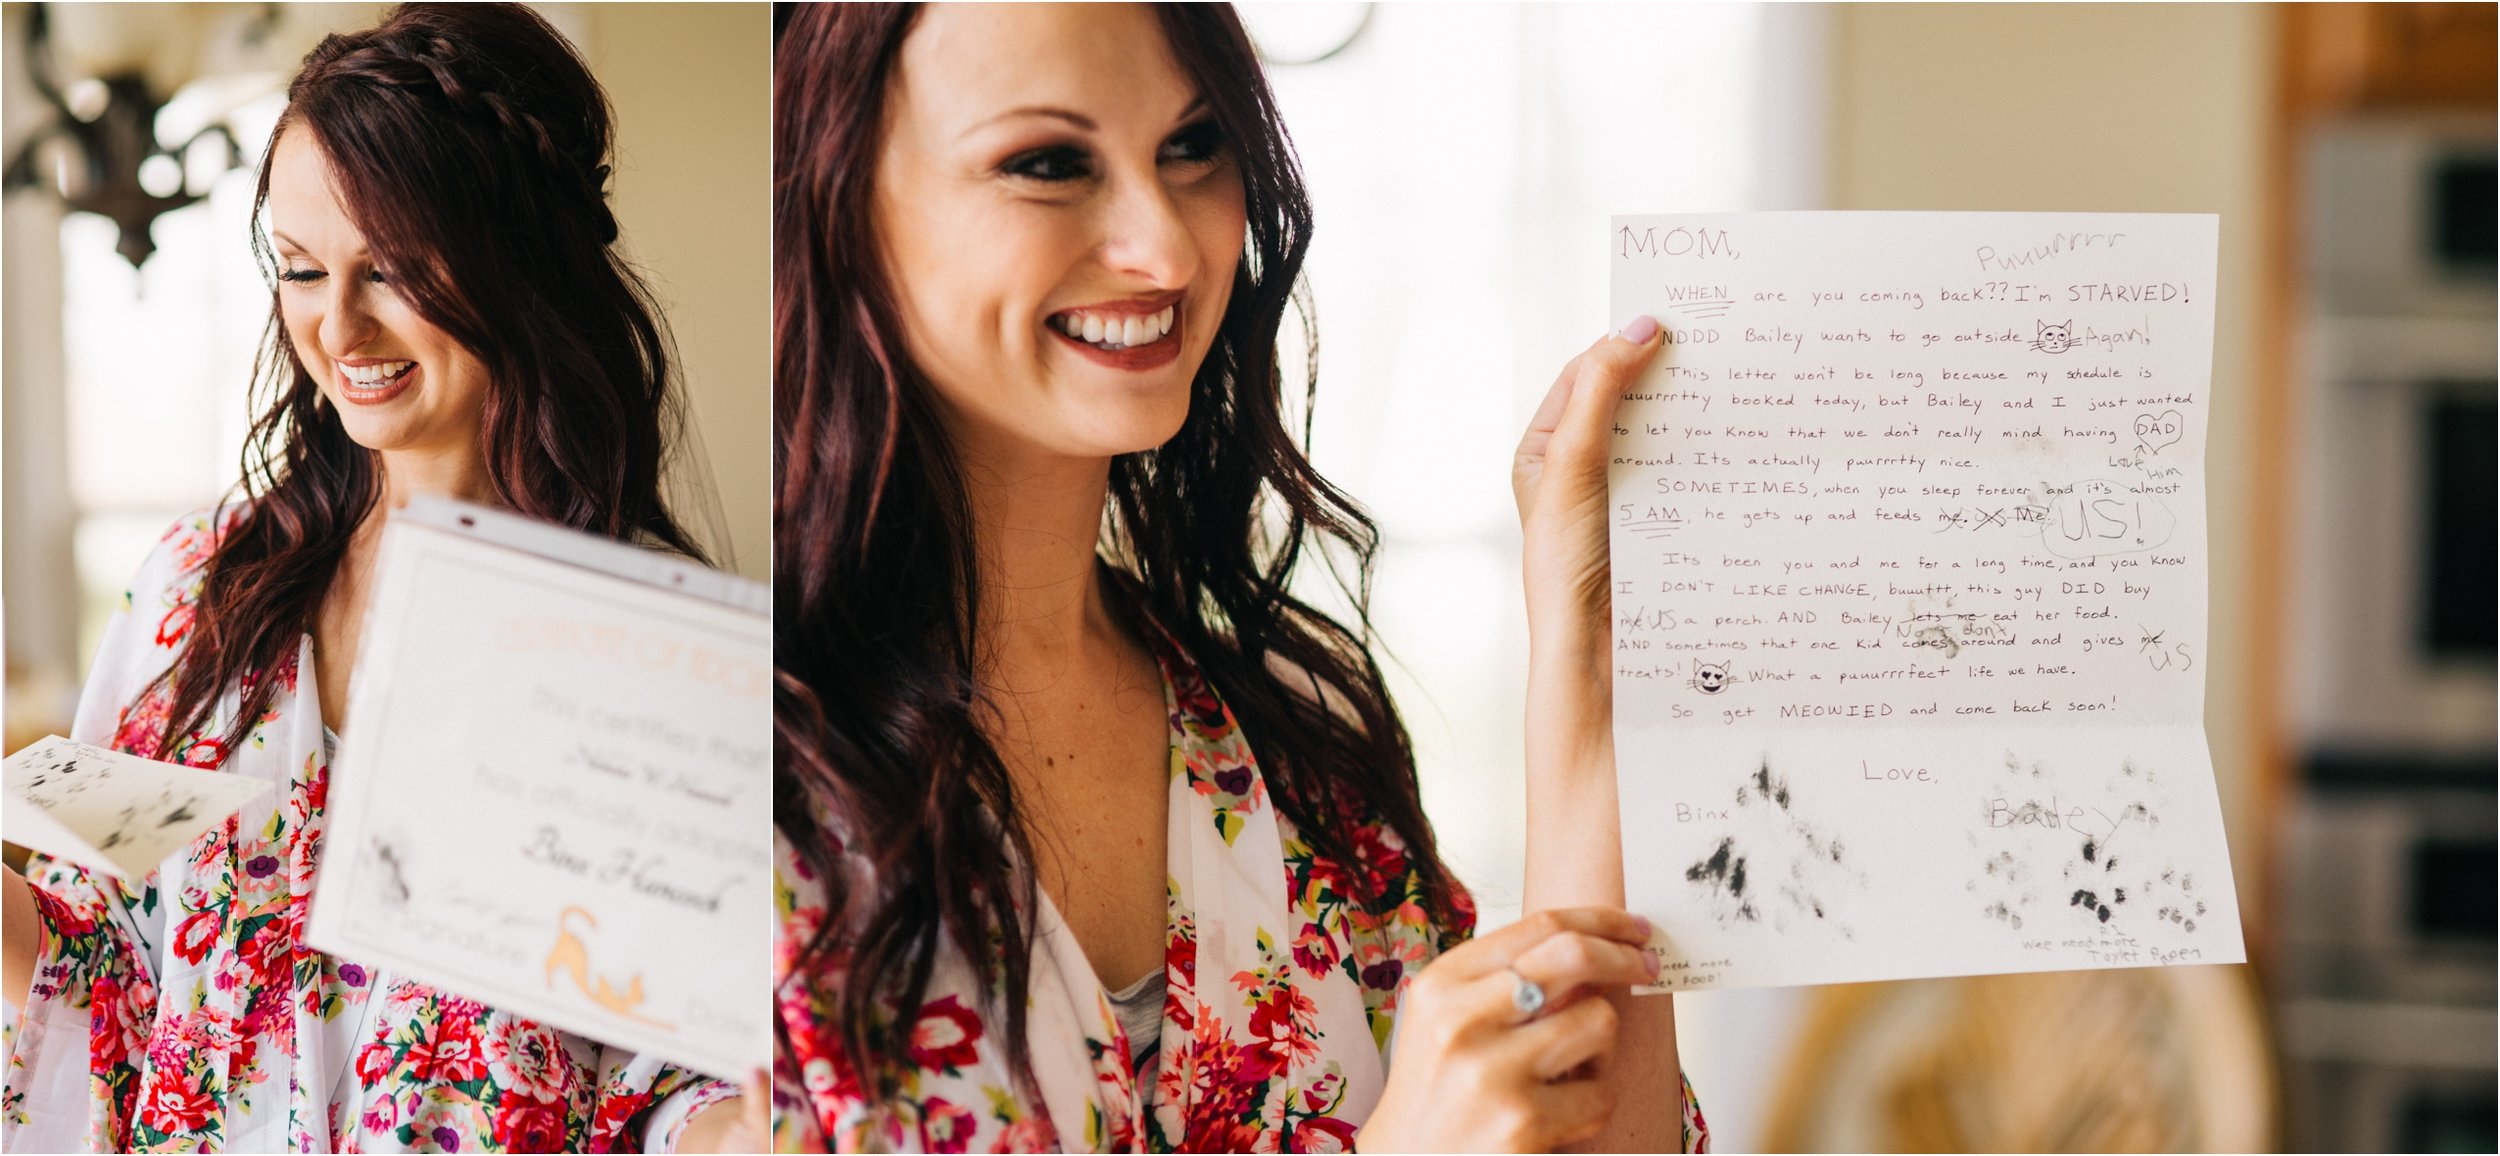 This certifies that
has officially adopted
Binx Hancock
Signature
Date
MOM,
Puuurrrrr
WHEN are you coming back?? I'm STARVED!
NDDD Bailey wants to go outside Agan!
This letter won't be long because my schedule is
uuurrrtty booked today, but Bailey and I just wanted
to let you know that we don't really mind having DAD
Love Him
around. Its actually puurrrtty nice.
SOMETIMES, when you sleep forever and it's almost
5 AM, he gets up and feeds me. Me! US!
Its been you and me for a long time, and you know
I DON'T LIKE CHANGE, buuuttt, this guy DID buy
me US a perch. AND Bailey lets me eat her food.
No I dont
AND sometimes that one kid comes around and gives me
US
treats! What a puuurrrfect life we have.
So get MEOWIED and come back soon!
Love,
Binx
Bailey
need more
wet FOOD!
Wee need more
Taylet Papen